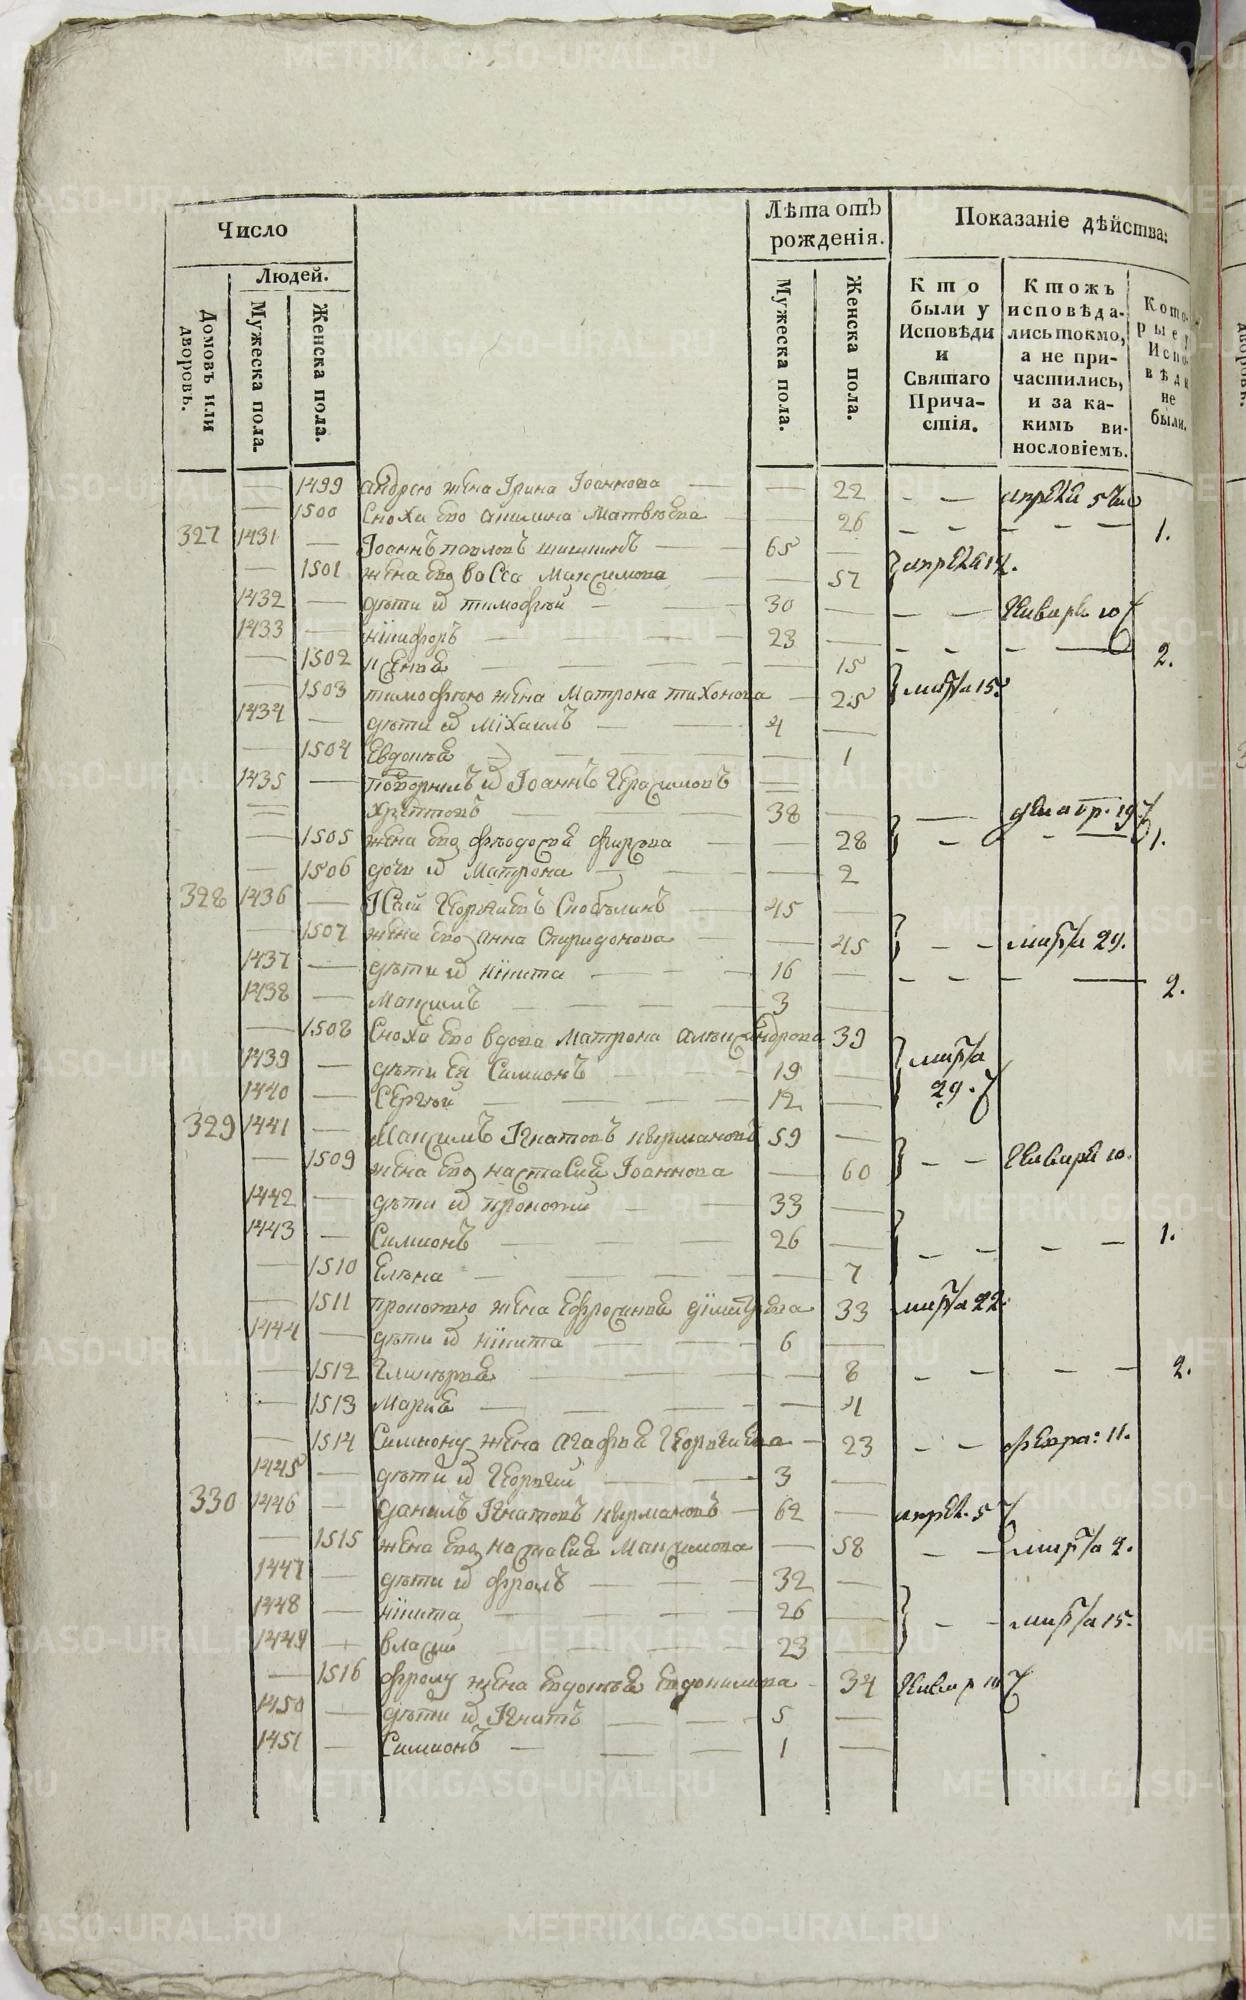 Число
Людей.
Домовъ или дворовъ.
Мужеска пола.
Женска пола.
Лѣта отъ рожденія.
Мужеска пола.
Женска пола.
Показаніе дѣйства:
Кто были у Исповѣди и Святаго Прича-стія.
Ктожъ исповѣда-лись токмо, а не при-частились, и за ка-кимъ ви-нословіемъ.
Кото-рые у Испо-вѣди не были.
1499 андрею жена Ірина Іоаннова 22 апреля 5 чис
1500 Сноха ево акилина Матвѣева 26 1.
327 1431 Іоаннъ павловъ шишкинъ 65
1501 жена ево васса Максимова 57 апреля 14.
1432 дѣти и тимофѣй 30 Генваря 10
1433 никифоръ 23
1502 ксеніа 15 2.
1503 тимофѣю жена Матрона тихонова 25 марта 15.
1434 дѣти и міхаилъ 4
1504 Евдокѣа 1
1435 Іоаннъ Герасимовъ
38 19
1505 жена ево феодосіа фирсова 28 1.
1506 дочь и Матрона 2
328 1436 Ісай Георгіевъ 45
1507 жена ево анна Спиридонова 45 марта 29.
1437 дѣти и никита 16
1438 Максимъ 3 2.
1508 Сноха ево вдова Матрона александрова 39
1439 дѣти ея Симионъ 19 марта
1440 Сергѣй 12 29.
329 1441 Максимъ Ігнатовъ курмановъ 59
1509 жена ево настасиа Іоаннова 60 Генваря 10.
1442 дѣти и прокопий 33
1443 Симионъ 26 1.
1510 Елѣна 7
1511 прокопию жена Ефросиниа димитрева 33 марта 22.
1444 дѣти и никита 6
1512 Гликѣриа 8 2.
1513 Мариа 4
1514 Симиону жена агафиа Георгиева 23 февра: 11.
1445 дѣти и Георгий 3
330 1446 данилъ Ігнатовъ курмановъ 62 апрел. 5
1515 жена ево настасиа Максимова 58 марта 2.
1447 дѣти и фролъ 32
1448 никита 26 марта 15.
1449 власий 23
1516 фролу жена евдокѣа евдокимова 34 Генвар 10
1450 дѣти и Ігнатъ 5
1451 Симионъ 1
METRIKI.GASO-URAL.RU